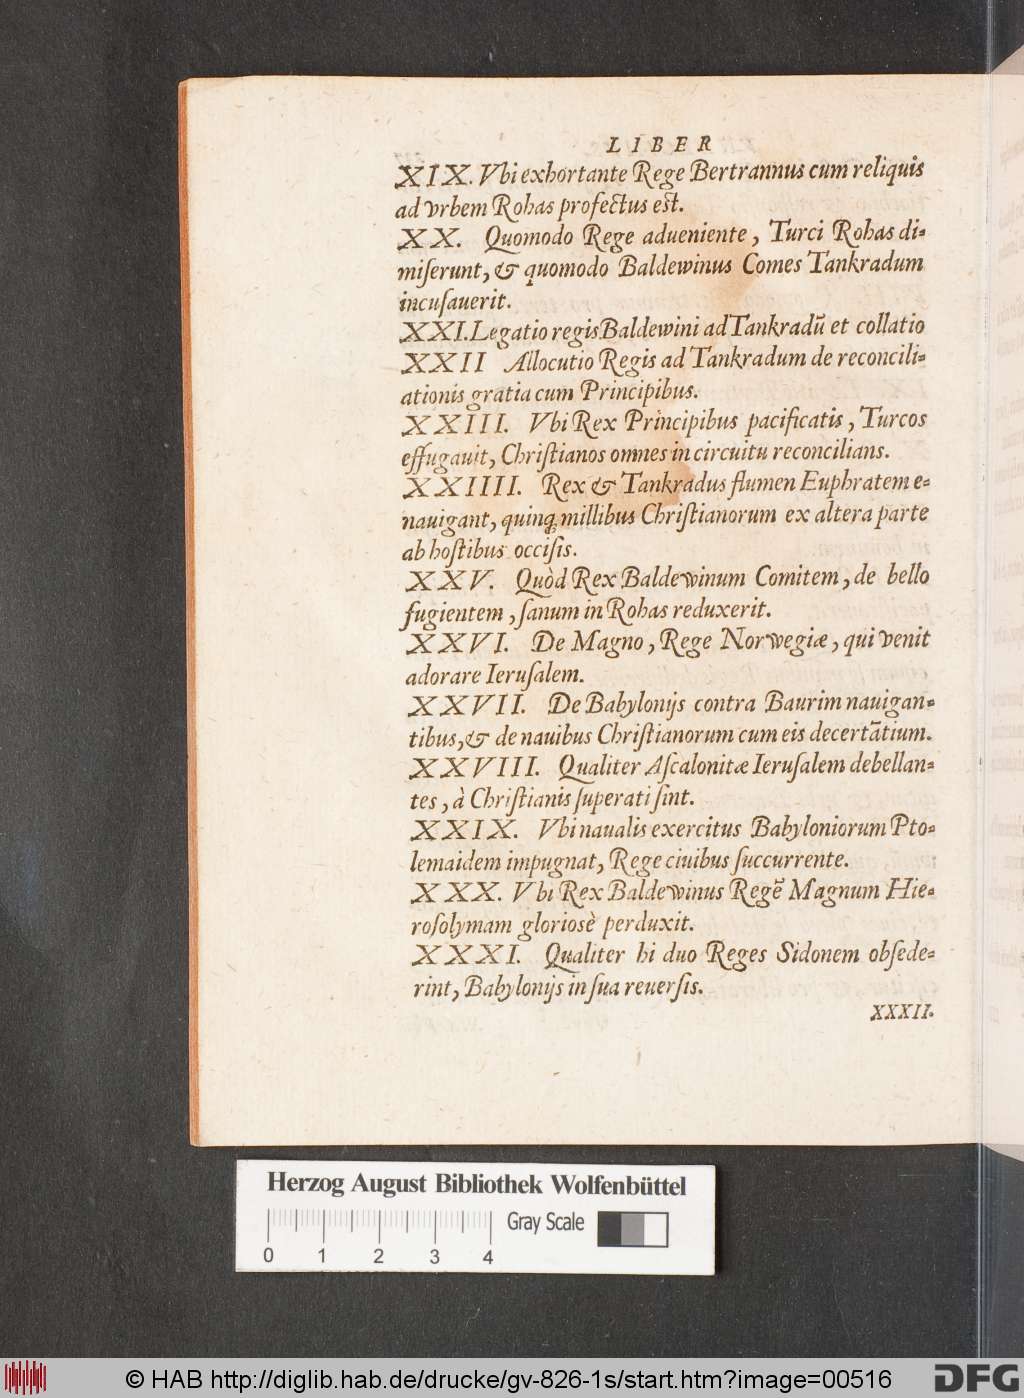 LIBER
XIX. Vbi exhortante Rege Bertrannus cum reliquis
ad vrbem Rohas profectus est.
XX. Quomodo Rege adueniente, Turci Rohas di-
miſerunt, & quomodo Baldewinus Comes Tankradum
incuſauerit.
XXI. Legatio regis Baldewini ad Tankradū et collatio
XXII Allocutio Regis ad Tankradum de reconcili-
ationis gratia cum Principibus.
XXIII. Vbi Rex Principibus pacificatis, Turcos
effugauit, Chriſtianos omnes in circuitu reconcilians.
XXIIII. Rex & Tankradus flumen Euphratem e-
nauigant, quinq; millibus Chriſtianorum ex altera parte
ab hoſtibus occiſis.
XXV. Quòd Rex Baldewinum Comitem, de bello
fugientem, ſanum in Rohas reduxerit.
XXVI. De Magno, Rege Norwegiæ, qui venit
adorare Ieruſalem.
XXVII. De Babylonijs contra Baurim nauigan-
tibus, & de nauibus Chriſtianorum cum eis decertātium.
XXVIII. Qualiter Aſcalonitæ Ieruſalem debellan-
tes, à Chriſtianis ſuperati ſint.
XXIX. Vbi naualis exercitus Babyloniorum Pto-
lemaidem impugnat, Rege ciuibus ſuccurrente.
XXX. Vbi Rex Baldewinus Regē Magnum Hie-
roſolymam glorioſè perduxit.
XXXI. Qualiter hi duo Reges Sidonem obſede-
rint, Babylonijs in ſua reuerſis.
XXXII.
Herzog August Bibliothek Wolfenbüttel
Gray Scale
0 1 2 3 4
© HAB http://diglib.hab.de/drucke/gv-826-1s/start.htm?image=00516
DFG